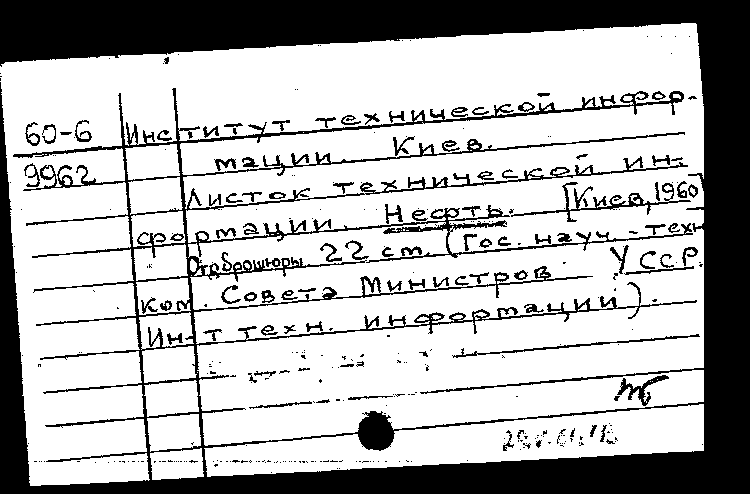 60-6 Институт технической инфор-
9962 мации. Киев.
Листок технической ин-
формации. Нефть. [Киев, 1960]
Отд.брошюры. 22 ст. (Гос. науч.-техн.
ком. Совета Министров УССР.
Ин-т техн. информации).